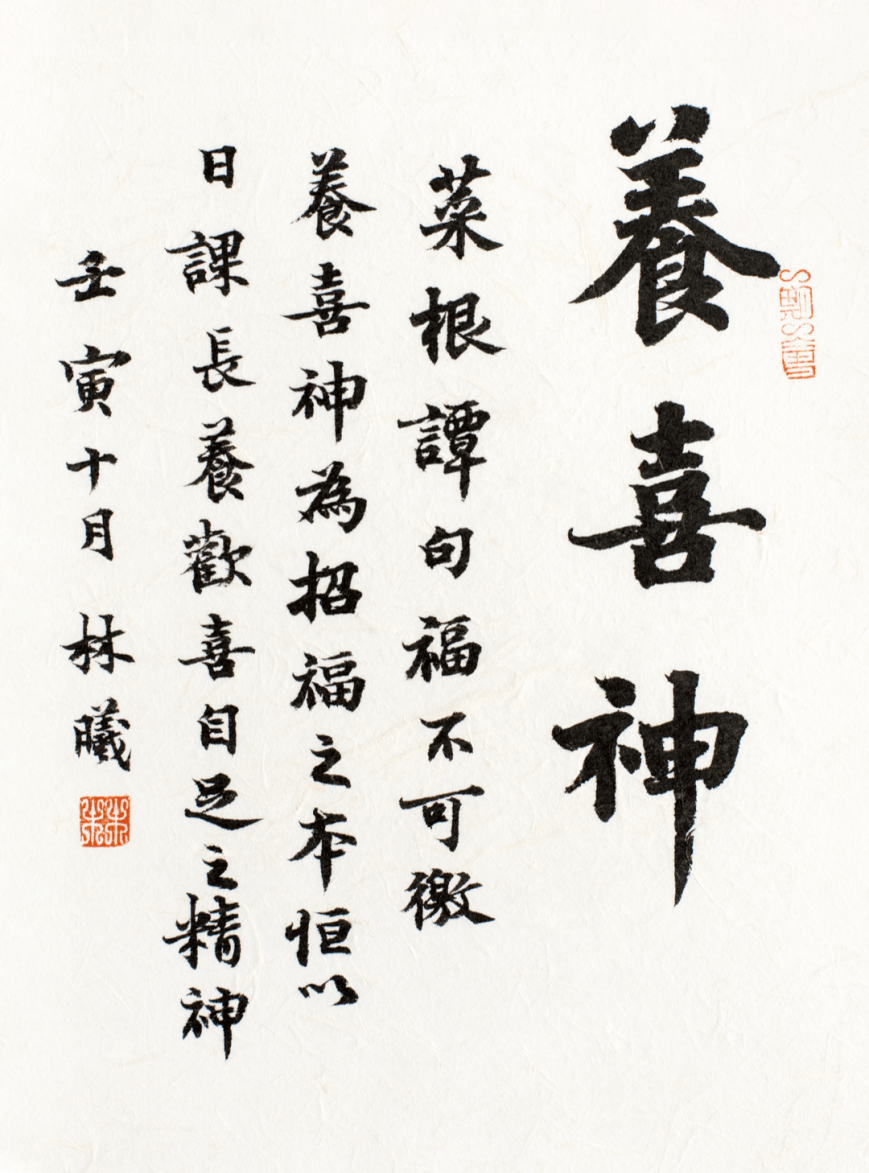 養喜神
菜根譚句福不可徼
養喜神為招福之本恒以
日課長養歡喜自足之精神
壬寅十月林曦